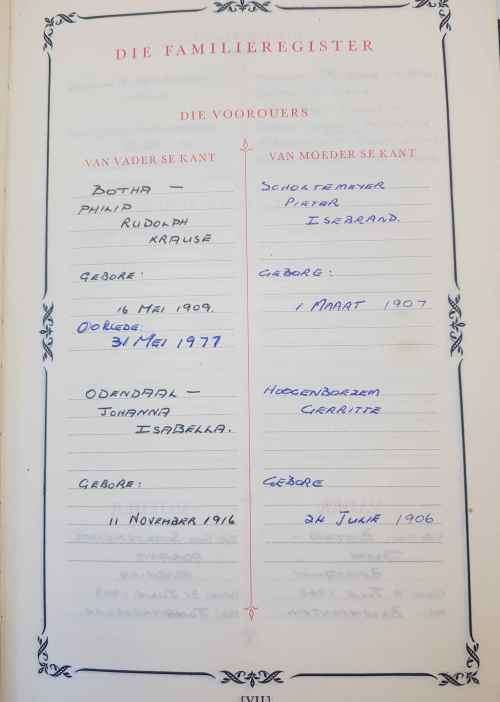 DIE FAMILIEREGISTER
DIE VOOROUERS
VAN VADER SE KANT
BOTHA —
PHILIP
RUDOLPH
KRAUSE
GEBORE:
16 MEI 1909.
OORLEDE:
31 MEI 1977
ODENDAAL —
JOHANNA
ISABELLA.
GEBORE:
11 NOVEMBER 1916
VAN MOEDER SE KANT
SCHOLTEMEYER
PIETER
ISEBRAND.
GEBORE:
1 MAART 1907
HOOGENBOEZEM
GERRITTE
GEBORE
24 JULIE 1906
[VII]